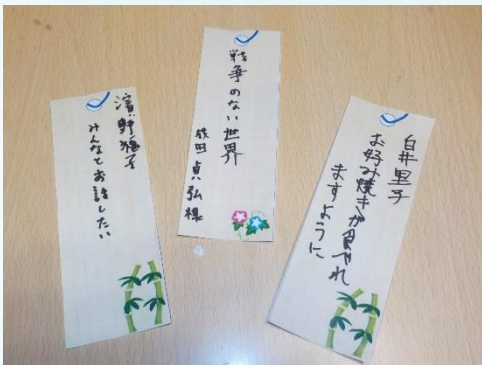 濱野猛子
みんなとお話したい
戦争のない世界
成田貞弘様
白井里子
お好み焼きが食べれ
ますように